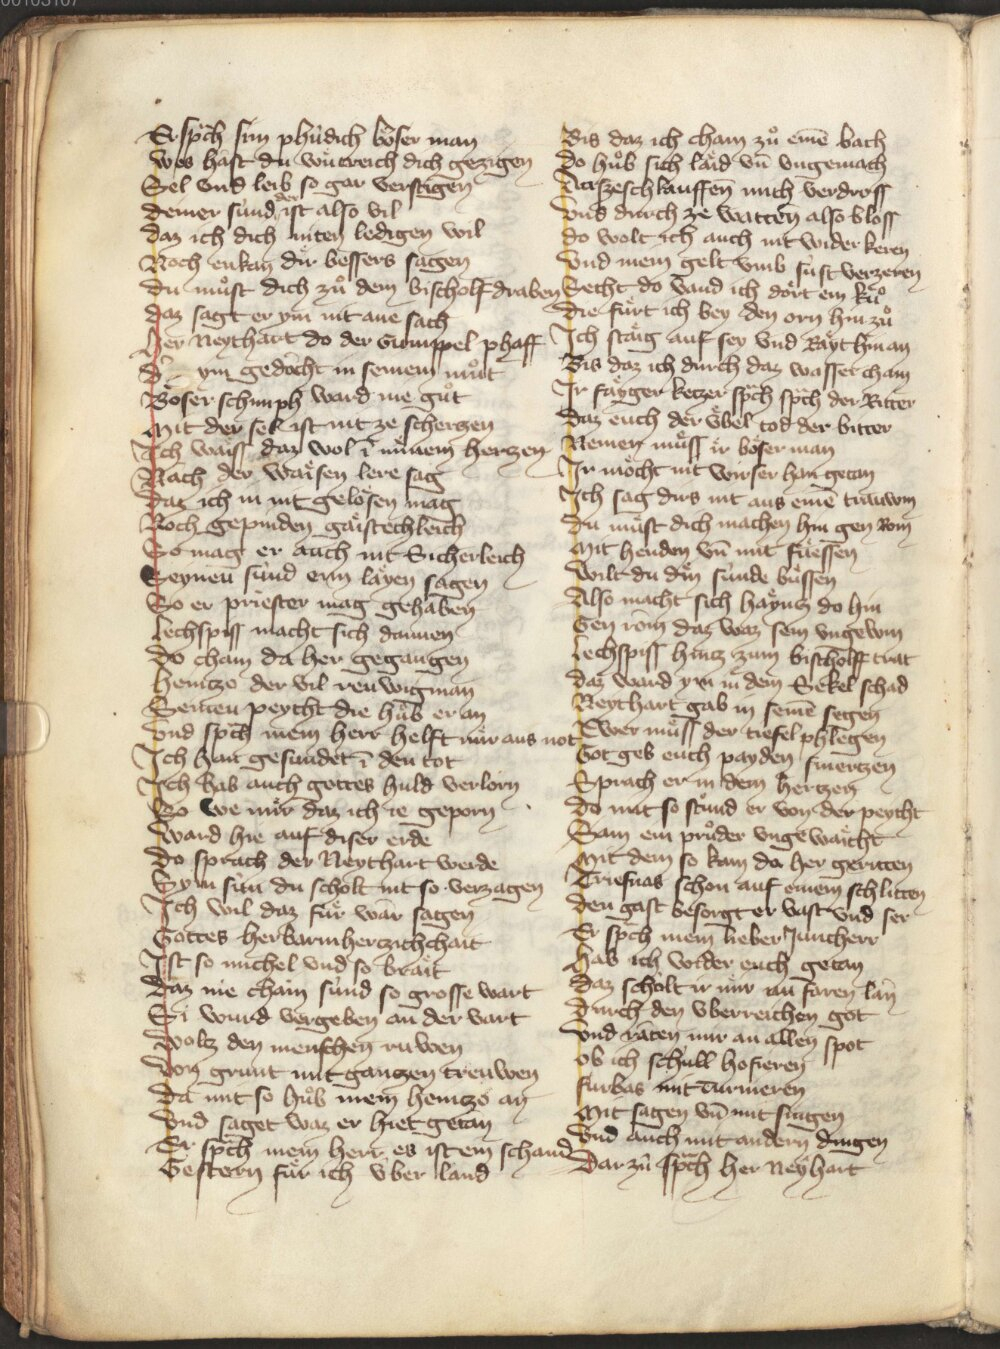 Er sp̄ch sun phudich böser man
Wes hast du wütreich dich gezigen
Sel vnd leib so gar verstigen
Deiner sünd der ist also vil
Daz ich dich niten ledigen wil
Noch enkan dir bessers sagen
Du můst dich zů dem bischolf draben
Daz sagt er ym nit ane sach
Her Neythart do der Gumppel phaff
ym gedocht in seinem můt
Böser schimph ward nie gůt
Mit der sel ist nit ze schertzen
Ich waiss daz wol ī minem hertzen
Nach der waisen lere sag
Daz ich in nit gelösen mag
Noch gepinden gaistechleich
So mag er auch nit Sicherleich
Seynen sünd eim läyen sagen
So er priester mag gehaben
Lechspiss macht sich dannen
Do cham da her gegangen
Heintze der vil reuwig man
Seinen peycht die hůb er an
Vnd sp̄ch mein herr helft mir aus not
Ich han gesundet ī den tot
Ich hab auch gottes huld verlorn
So we mir daz ich ie geporn
Ward hie auf diser erde
Do sprach der Neythart werde
Sym sun du scholt nit so verzagen
Ich wil daz für wär sagen
Gottes herbarmhertzichchait
Ist so michel vnd so brait
Daz nie chain sünd so grosse wart
Si wurd vergeben an der vart
Wolts den menschen ruwen
Von grunt mit gantzen treuwen
Da mit so hůb mein heintze an
Vnd saget waz er hiet getan
Er sp̄ch mein herr es ist ein schand
Gestern für ich vber land
Bis daz ich cham zů eine̅ bach
Do hůb sich laid vn̄ vngemach
Auszeschlauffen mich verdross
Vnd durch ze watten also bloss
Do wolt ich auch nit wider keren
Vnd mein gelt vmb süst verzeren
Secht do vand ich dört ein ků
Die fürt ich bey den orn hin zů
Ich staig auf sey vnd raythman
Bis daz ich durch daz wasser cham
Ir fayger ketzer sp̄ch sp̄ch der Ritter
Daz euch der übel tod der bitter
Nemen müss ir böser man
Ir möcht nit wirser han getan
Ich sag dirs nit aus eine̅ trauwm
Du müst dich machen hin gen Rom
Mit henden vn̄ mit füessen
Wilt du din sünde büssen
Also macht sich haÿntz do hin
Gen rom daz waz sein vngewin
Lechspiss hintz zum bischolff trat
Daz ward ym in dem Sekel schad
Neythart gab in seine̅ segen
Ewer müss der tiefel phlegen
Got geb euch payden smertzen
Sprach er in dem hertzen
Do mit so stůnd er von der peycht
Sam ein průder vngewaicht
Mit dem so kam do her geritten
Triefnas schon auf einem schlitten
Den gast besorgt er vast vnd ser
Er sp̄ch mein lieber Juncherr
Hab ich wider euch getan
Daz scholt ir mir an faren lan
Durch den vberreichen got
Vnd raten mir an allen spot
Ob ich schull hofieren
Furbas mit turnieren
Mit sagen vn̄ mit singen
Vnd auch mit andern dingen
Dar zů sp̄ch her Neyhart